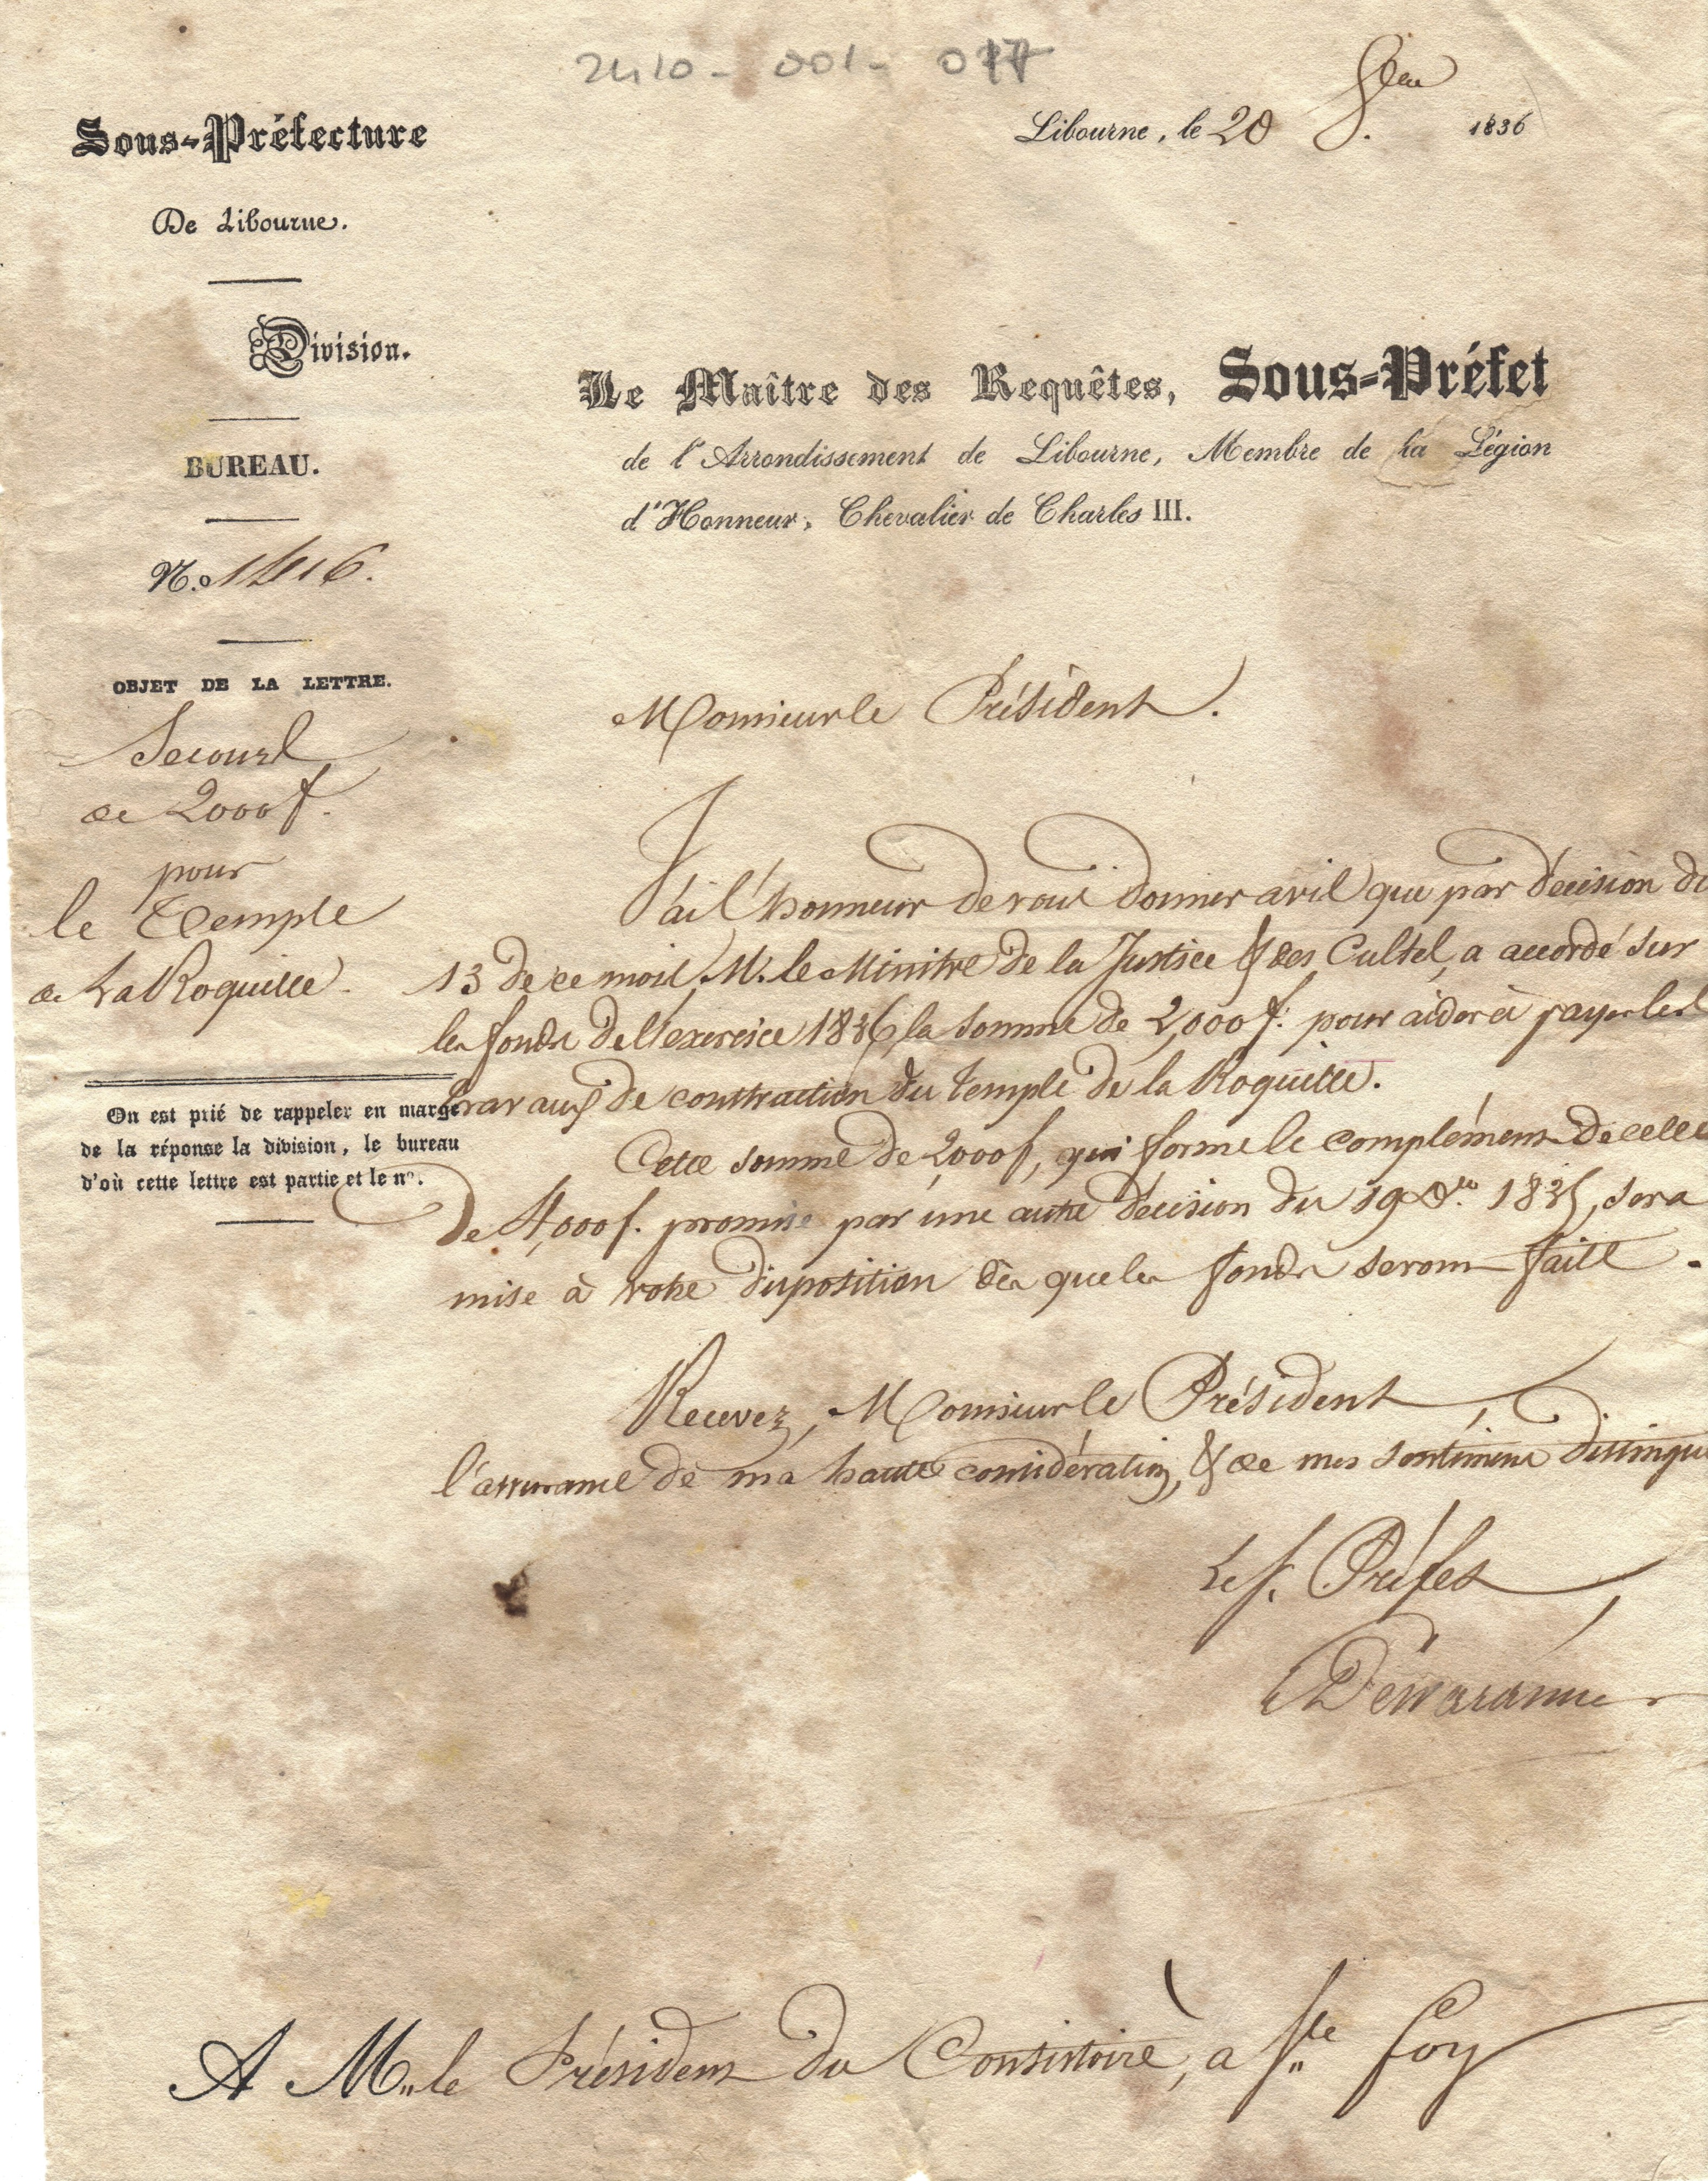 2410 - 001 - 017
Sous-Préfecture
De Libourne.
Division.
BUREAU.
N.o 1416.
OBJET DE LA LETTRE.
Secours
de 2000 f.
pour
le Temple
de La Roquille.
On est prié de rappeler en marge
de la réponse la division, le bureau
d'où cette lettre est partie et le no.
Libourne, le 20 1836
Le Maître des Requêtes, Sous-Préfet
de l'Arrondissement de Libourne, Membre de la Légion
d'Honneur, Chevalier de Charles III.
Monsieur le Président.
J'ai l'honneur de vous donner avis que par décision du
13 de ce mois, M. le Ministre de la Justice & des Cultes, a accordé sur
les fonds de l'exercice 1836, la somme de 2,000 f. pour aider à payer les
travaux de construction du temple de la Roquille.
Cette somme de 2,000 f, qui forme le complément de celle
de 4,000 f. promise par une autre décision du 19 1835, sera
mise à votre disposition dès que les fonds seront faits.
Recevez, Monsieur le Président,
l'assurance de ma haute considération, & de mes sentimens distingués
Le S. Préfet
A M. le Président du Consistoire, a Ste Foy